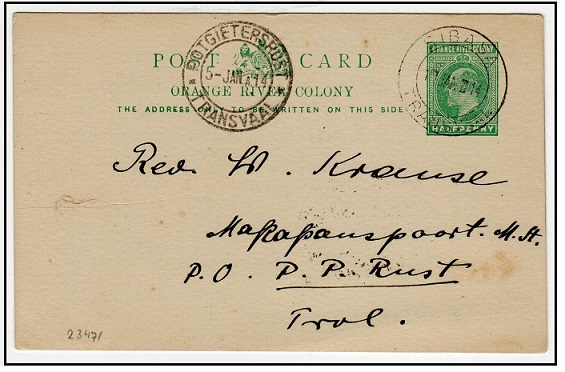 POST CARD
ORANGE RIVER COLONY
THE ADDRESS ONLY TO BE WRITTEN ON THIS SIDE
POTGIETERSPOST
5-JAN.14
TRANSVAAL
ORANGE RIVER COLONY
HALFPENNY
Rev. W. Krause
Makapanspoort. M. St.
P.O. P. P. Rust
Trvl.
23471